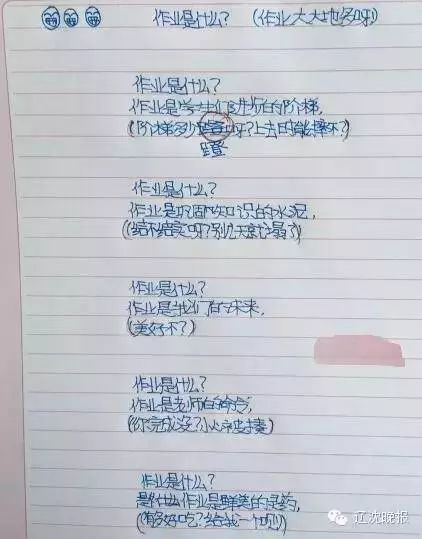 作业是什么？ (作业大大地多呀!)
作业是什么？
作业是学生们进步的阶梯，
(阶梯多少蹬呀？上去时能摔不？)
蹬
作业是什么？
作业是巩固知识的水泥，
(结不结实呀？别几天就塌了)
作业是什么？
作业是我们的未来，
(美好不？)
作业是什么？
作业是老师的命令，
(你完成没？小心被揍)
作业是什么？
作业是鲜美的灵药，
(有多好吃？给我一个呗!)
辽沈晚报